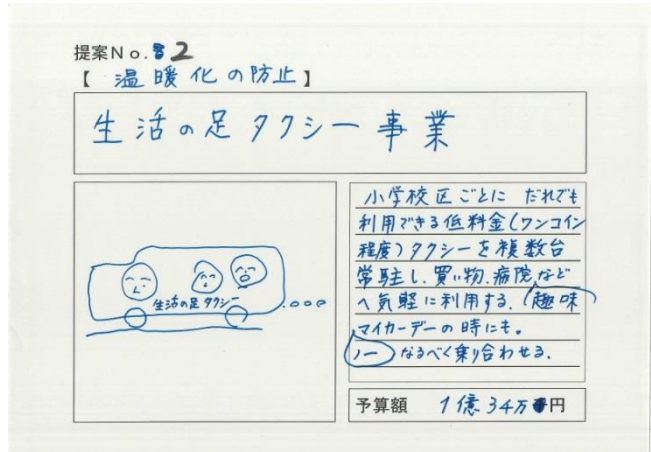 提案No.2
【 温暖化の防止 】
生活の足タクシー事業
生活の足タクシー
小学校区ごとに だれでも
利用できる低料金(ワンコイン
程度)タクシーを複数台
常駐し、買い物、病院、など
へ気軽に利用する。(趣味
マイカーデーの時にも。
ノー なるべく乗り合わせる。
予算額 1億34万円